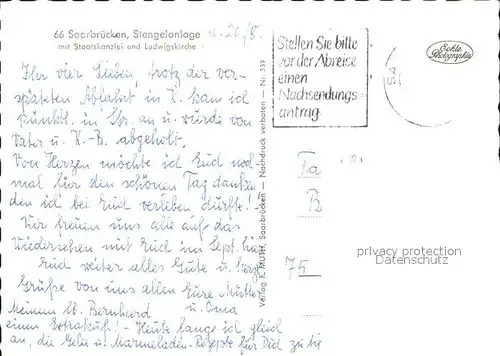 66 Saarbrücken, Stengelanlage
mit Staatskanzlei und Ludwigskirche
d. 20/8.
Stellen Sie bitte
vor der Abreise
einen
Nachsendungs-
antrag
Echte
Photographie
Ihr vier Lieben, trotz der ver-
späteten Abfahrt in K. kam ich
pünktl. in Sbr. an u. wurde von
Vater u. K.-B. abgeholt.
Von Herzen möchte ich Euch noch
mal für den schönen Tag danken
den ich bei Euch verleben durfte!
Wir freuen uns alle auf das
Wiedersehen mit Euch im Sept. hier
Euch weiter alles Gute u. herzl.
Grüße von uns allen Eure Mutter
u. Oma
Meinem lb. Bernhard
einen Extrakuß! - Heute lange ich gleich
an, die Gelee u. Marmeladen-Rezepte für Dich zu
Verlag K. MUTH, Saarbrücken — Nachdruck verboten — Nr. 339
Fa
B
75
privacy protection
Datenschutz